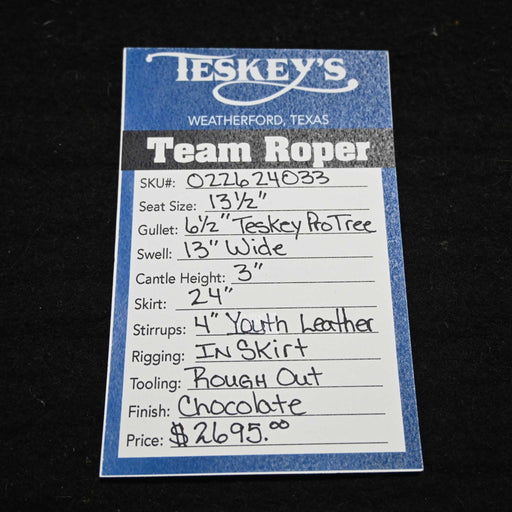 TESKEY'S
WEATHERFORD, TEXAS
Team Roper
SKU#: 022624033
Seat Size: 13 1/2"
Gullet: 6 1/2" Teskey Pro Tree
Swell: 13" Wide
Cantle Height: 3"
Skirt: 24"
Stirrups: 4" Youth Leather
Rigging: IN Skirt
Tooling: ROUGH OUT
Finish: Chocolate
Price: $2695.00